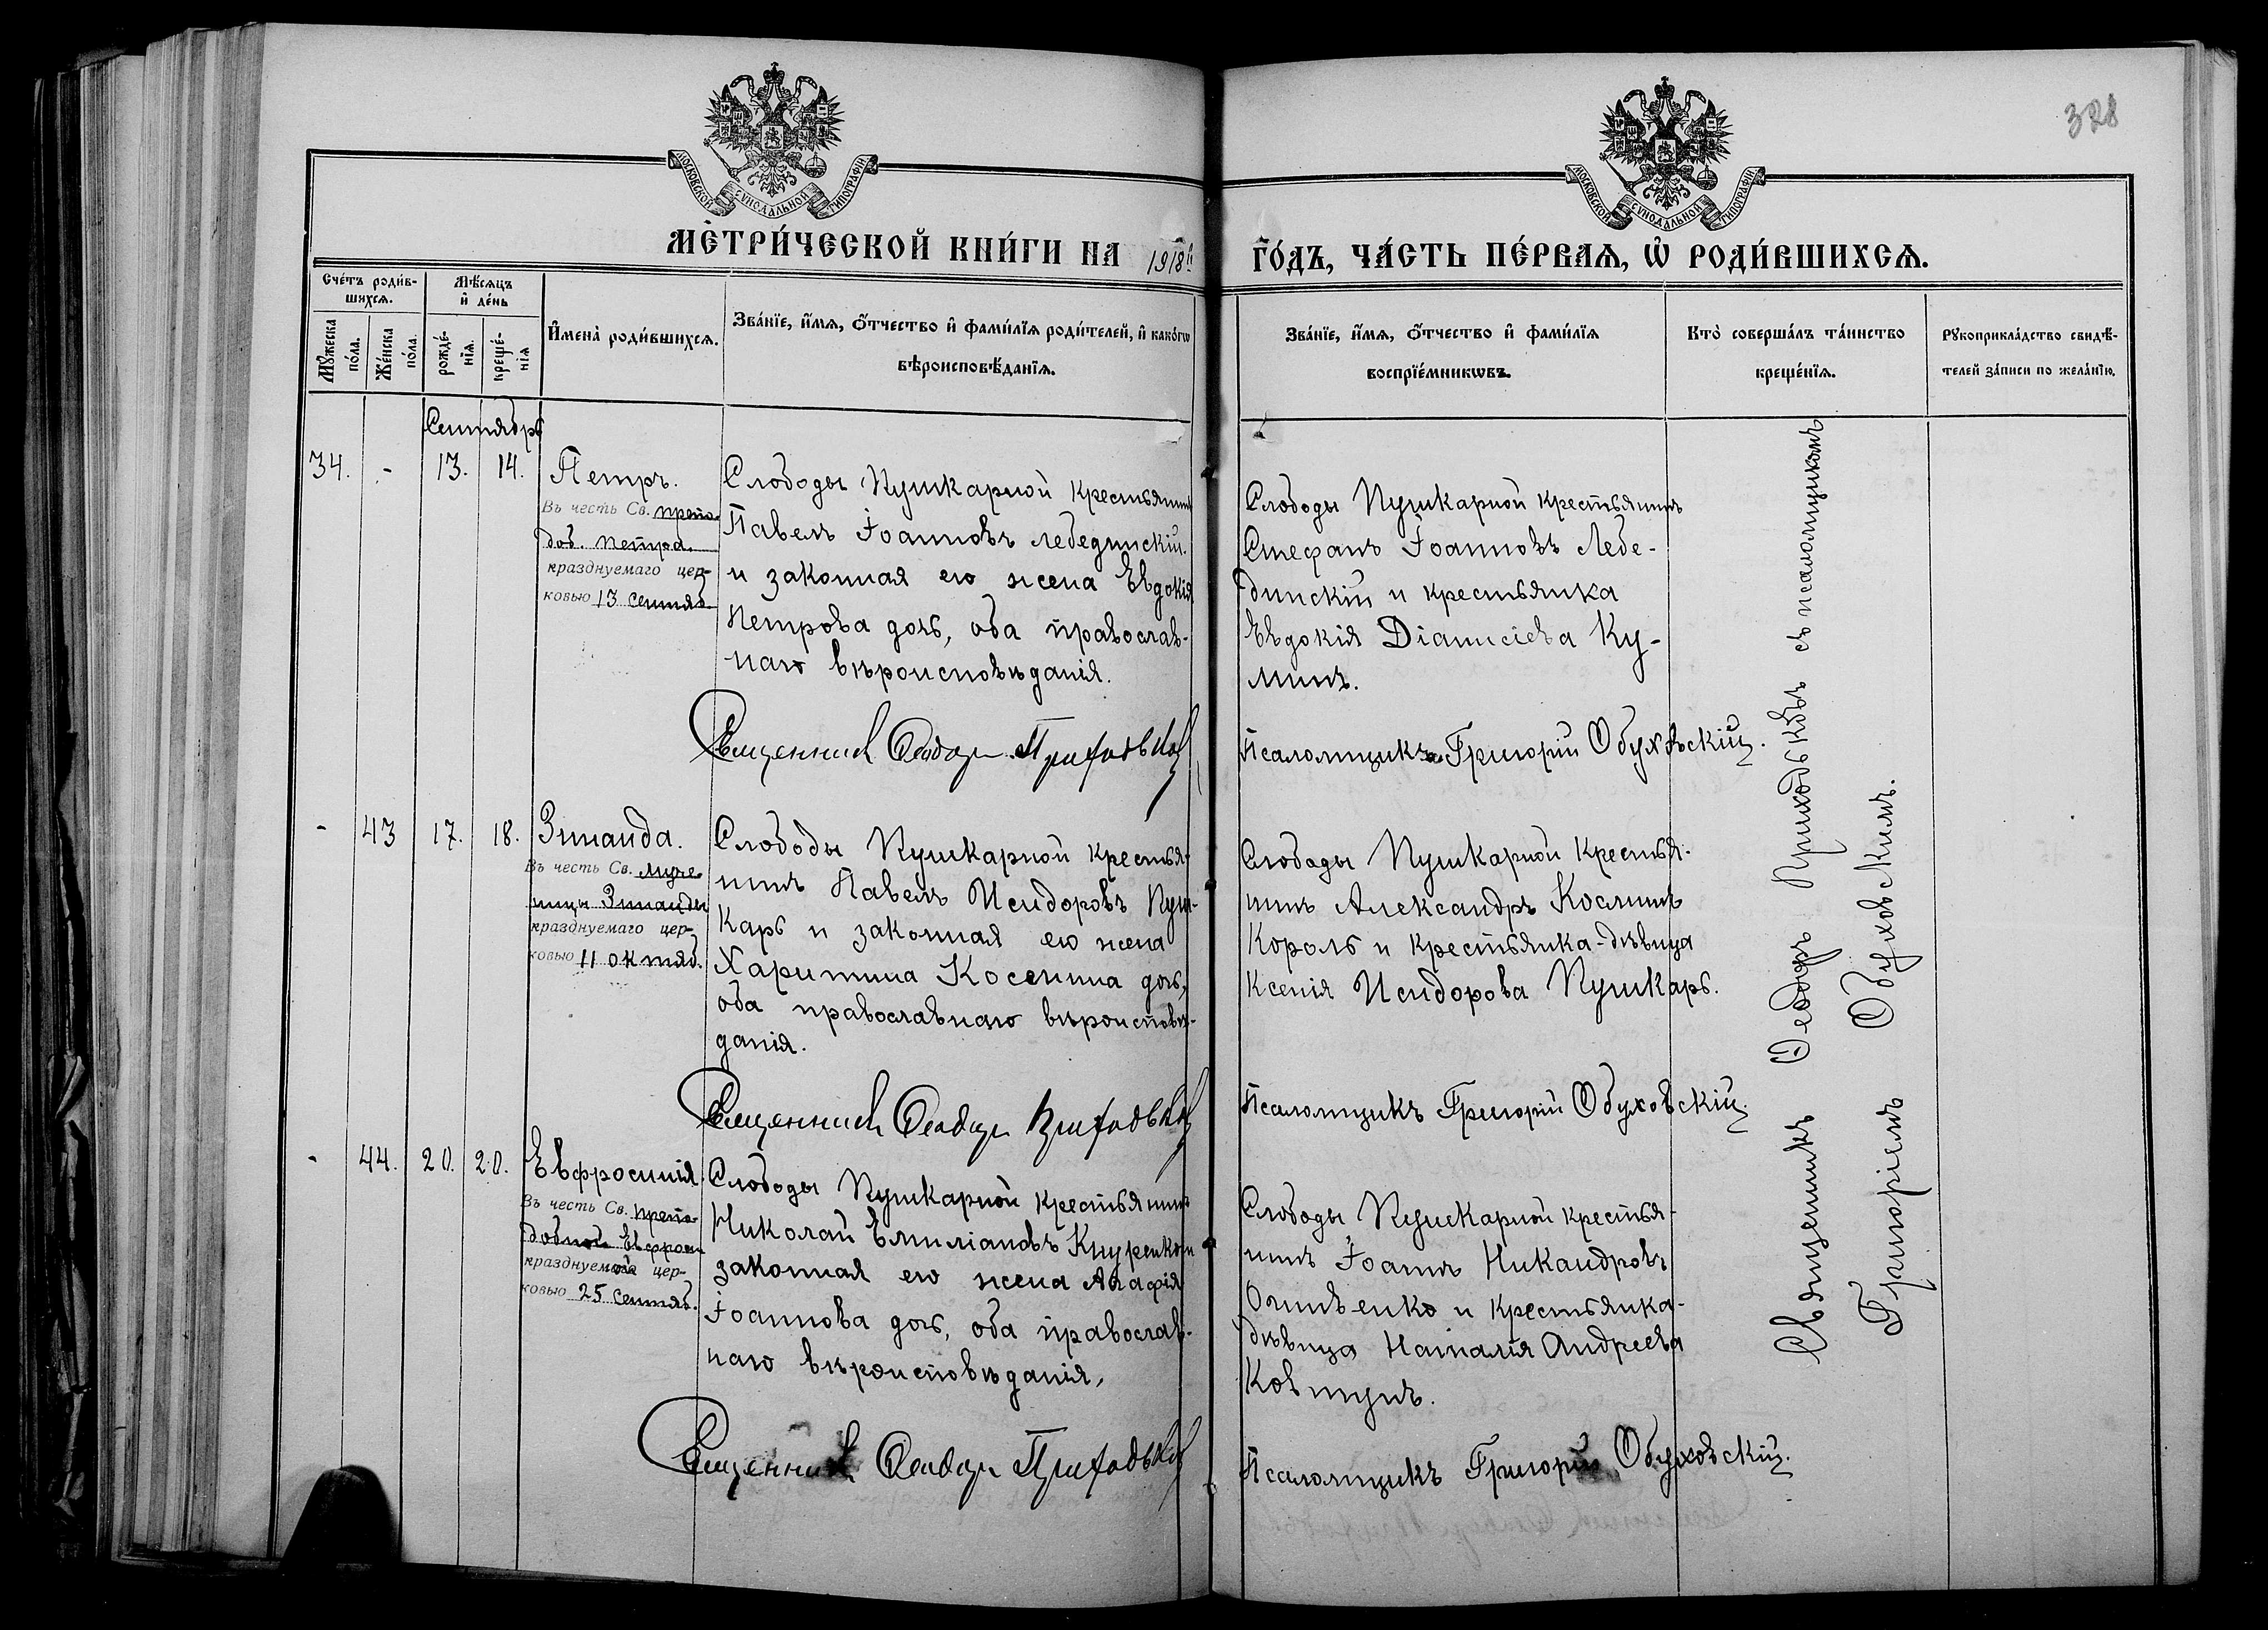 328
МОСКОВСКОЙ СУНОДАЛЬНОЙ ТИПОГРАФІИ
МОСКОВСКОЙ СУНОДАЛЬНОЙ ТИПОГРАФІИ
МЕ́ТРИ́ЧЕСКОЙ КНИ́ГИ НА 1918й ГО́ДЪ, ЧА́СТЬ ПЕ́РВАѦ, Ѡ҆ РОДИ́ВШИХСѦ.
Сче́тъ роди́в-
шихсѧ.
Мꙋ́жеска
по́ла.
Же́нска
по́ла.
Мѣ́сѧцъ
и҆ де́нь
рожде́-
нїѧ.
креще́-
нїѧ
И҆мена̀ роди́вшихсѧ.
Зва́нїе, и҆́мѧ, ѻ҆́тчество и҆ фами́лїѧ роди́телей, и҆ како́гѡ
вѣроисповѣ́данїѧ.
Зва́нїе, и҆́мѧ, ѻ҆́тчество и҆ фами́лїѧ
воспрїе́мникѡвъ.
Кто̀ соверша́лъ та́инство
креще́нїѧ.
Рꙋкоприкла́дство свидѣ́-
телей за́писи по жела́нїю.
Сентябрь
34. - 13. 14. Петръ.
Въ честь Св. препо-
доб. Петра.
празднуемаго цер-
ковью 13 Сентяб.
Слободы Пушкарной крестьянинъ
Павелъ Іоанновъ Лебединскій
и законная его жена Евдокія
Петрова дочь, оба православ-
наго вѣроисповѣданія.
Священник Феодор Приходько
Слободы Пушкарной крестьянинъ
Стефанъ Іоанновъ Лебе-
динскій и крестьянка
Евдокія Діанисіева Ку-
минъ.
Псаломщикъ Григорій Обуховскій.
- 43 17. 18. Зинаида.
Въ честь Св. муче-
ницы Зинаиды
празднуемаго цер-
ковью 11 октяб.
Слободы Пушкарной крестья-
нинъ Павелъ Исидоровъ Пуш-
карь и законная его жена
Харитина Косенина дочь,
оба православнаго вѣроисповѣ-
данія.
Священник Феодор Приходько
Слободы Пушкарной крестья-
нинъ Александръ Косминъ
Король и крестьянка-дѣвица
Ксенія Исидорова Пушкарь.
Псаломщикъ Григорій Обуховскій.
- 44. 20. 20. Евфросинія.
Въ честь Св. препо-
добной Евфрос
празднуемаго цер-
ковью 25 Сентяб.
Слободы Пушкарной крестьянинъ
Николай Емиліановъ Кнуренко и
законная его жена Агафія
Іоаннова дочь, оба православ-
наго вѣроисповѣданія,
Священник Феодор Приходько
Слободы Пушкарной крестья-
нинъ Іоаннъ Никандровъ
и крестьянка-
дѣвица Наталія Андреева
Ковтунъ.
Псаломщикъ Григорій Обуховскій.
Священникъ Ѳеодоръ Приходькъ съ псаломщикомъ
Григоріемъ Обуховскимъ.